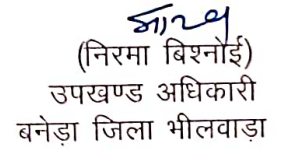 (निरमा बिश्नोई)
उपखण्ड अधिकारी
बनेड़ा जिला भीलवाड़ा